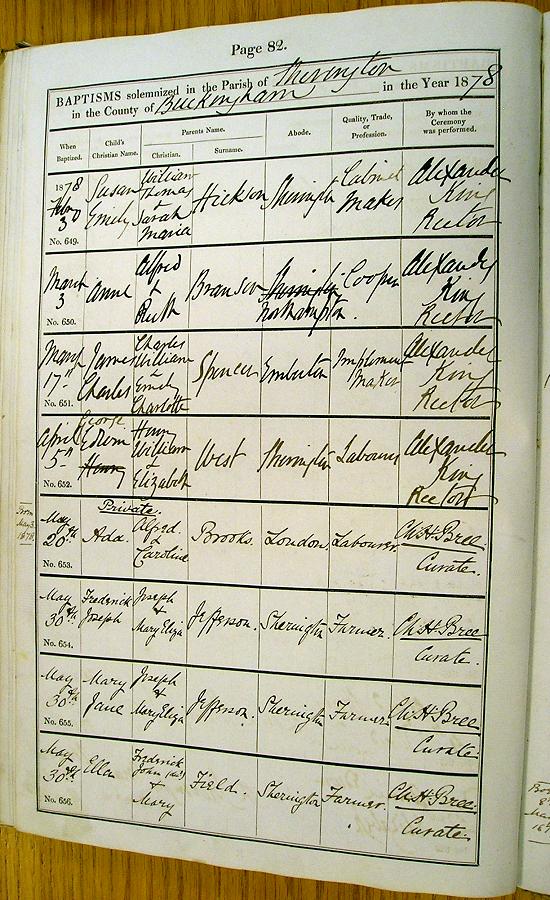 Page 82.
BAPTISMS solemnized in the Parish of Sherington
in the County of Buckingham in the Year 1878
When Baptized. Child's Christian Name. Parents Name. Abode. Quality, Trade, or Profession. By whom the Ceremony was performed.
Christian. Surname.
1878 Susan William Alexander
Thomas Hickson Sherington Cabinet King
3 Emily & Sarah Maker Rector
No. 649. Maria
March Anne Alfred Branson Sherington Cooper Alexander
3 & Northampton King
No. 650. Ruth Rector
March James Charles Spencer Emberton Implement Alexander
17th Charles William & Maker King
No. 651. Emily Charlotte Rector
George
April Edwin Henry West Sherington Labourer Alexander
5th Henry William & King
No. 652. Elizabeth Rector
Private.
Born May 3. 1878
May Ada. Alfred. Brooks. London. Labourer. Ch. H. Bree
20th & Caroline Curate.
No. 653.
May Frederick Joseph Jefferson. Sherington Farmer. Ch. H. Bree
30th Joseph & Mary Eliza Curate.
No. 654.
May Mary Joseph Jefferson. Sherington Farmer Ch. H. Bree
30th Jane & Mary Eliza Curate.
No. 655.
May Ellen Frederick Field. Sherington Farmer. Ch. H. Bree
30th John & Mary Curate.
No. 656.